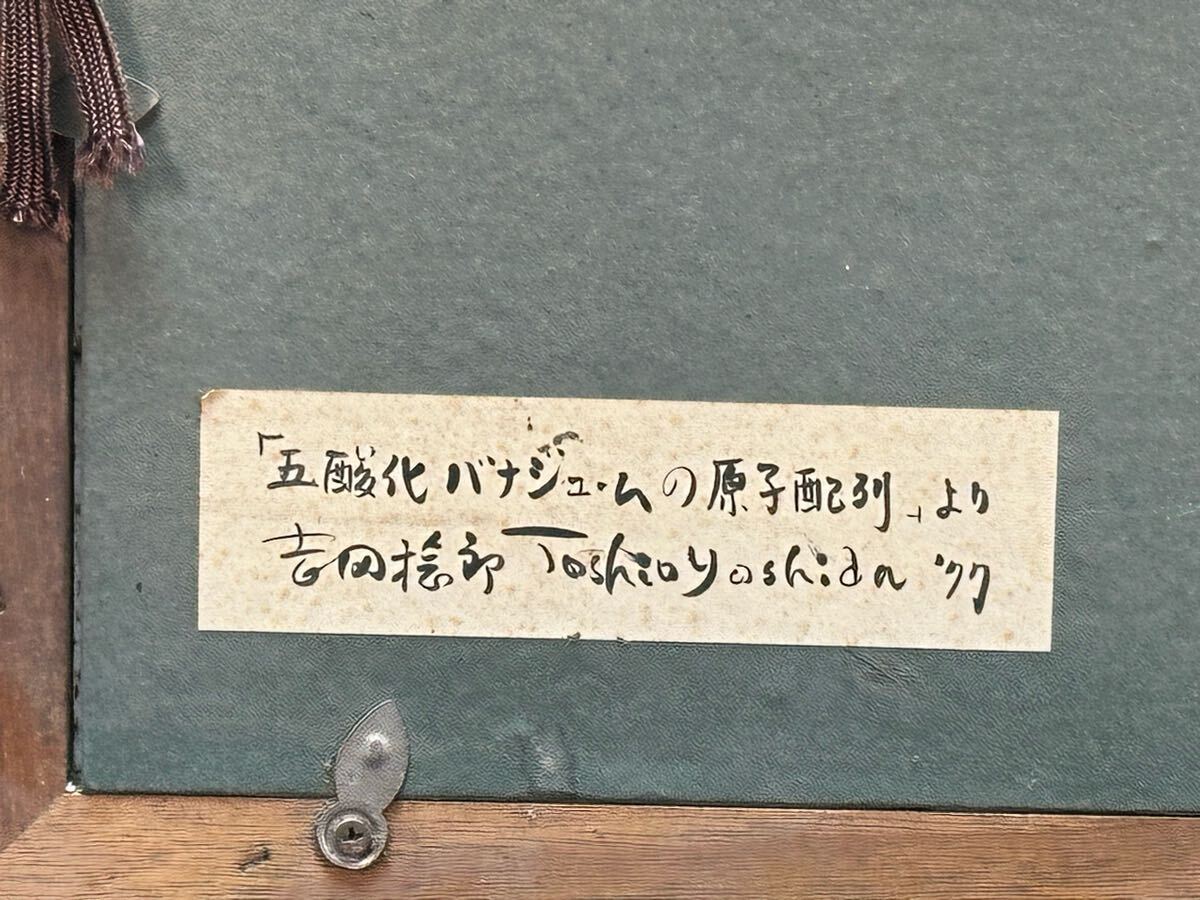 「五酸化バナジュームの原子配列」より
吉田稔郎 Toshio Yoshida '77